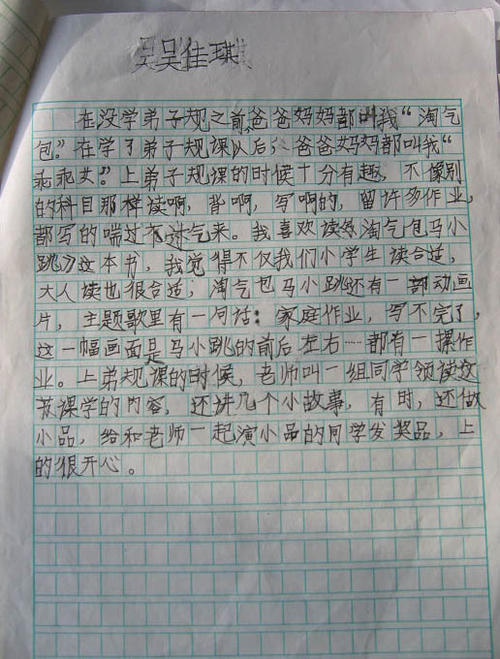 吴吴佳琪
在没学弟子规之前,爸爸妈妈都叫我“淘气
包。”在学了弟子规课以后,爸爸妈妈都叫我“
乖乖女。”上弟子规课的时候十分有趣,不像别
的科目那样读啊,背啊,写啊的,留许多作业,
都写的喘过不进气来。我喜欢读《淘气包马小
跳》这本书,我觉得不仅我们小学生读合适,
大人读也很合适;淘气包马小跳还有一部动画
片,主题歌里有一句话:家庭作业,写不完了,
这一幅画面是马小跳的前后左右……都有一摞作
业。上弟规课的时候,老师叫一组同学领读这
节课学的内容,还讲几个小故事,有时,还做
小品,给和老师一起演小品的同学发奖品,上
的很开心。